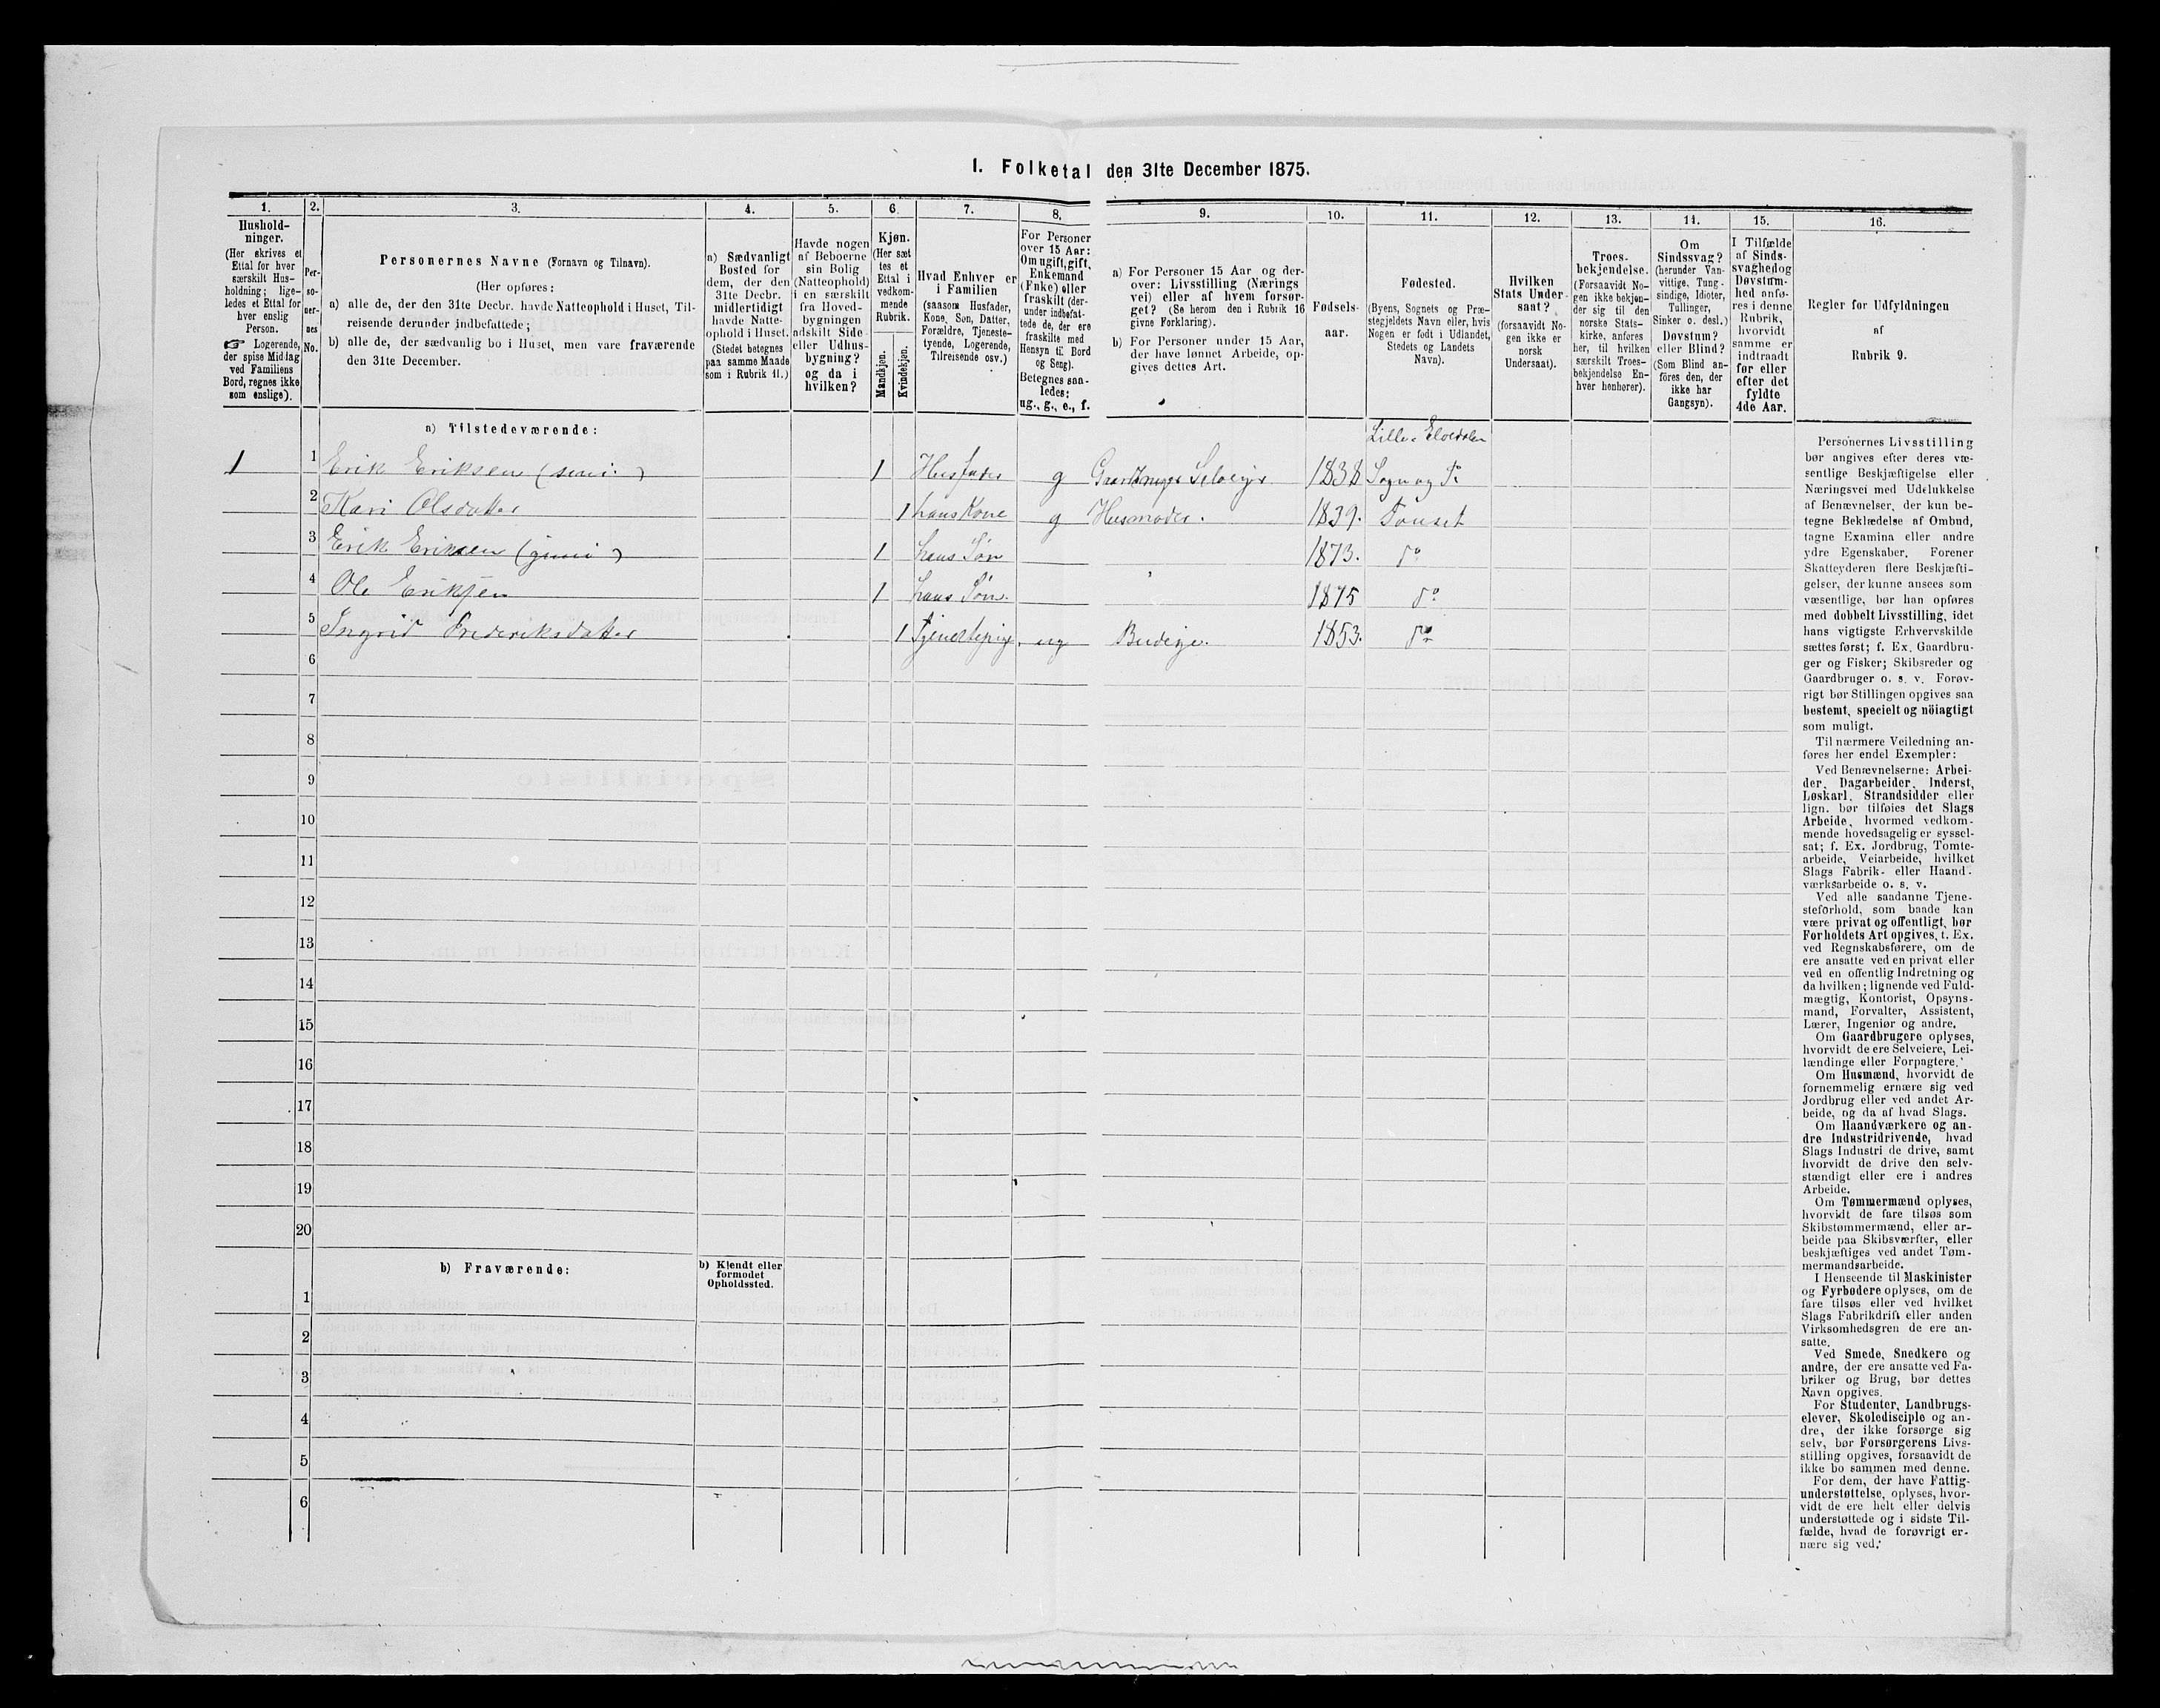 I. Folketal den 31te December 1875.
1.
Hushold-
ninger.
(Her skrives et
Ettal for hver
særskilt Hus-
holdning; lige-
ledes et Ettal for
hver enslig
Person.
☞ Logerende,
der spise Middag
ved Familiens
Bord, regnes ikke
som enslige).
2.
Per-
so-
ner-
nes
No.
3.
Personernes Navne (Fornavn og Tilnavn).
(Her opføres:
a) alle de, der den 31te Decbr. havde Natteophold i Huset, Til-
reisende derunder indbefattede;
b) alle de, der sædvanlig bo i Huset, men vare fraværende
den 31te December.
4.
a) Sædvanligt
Bosted for
dem, der den
31te Decbr.
midlertidigt
havde Natte-
ophold i Huset.
(Stedet betegnes
paa samme Maade
som i Rubrik 11.)
5.
Havde nogen
af Beboerne
sin Bolig
(Natteophold)
i en særskilt
fra Hoved-
bygningen
adskilt Side-
eller Udhus-
bygning?
og da i
hvilken?
6.
Kjøn.
(Her sæt
tes et
Ettal i
vedkom-
mende
Rubrik.
Mandkjøn.
Kvindekjøn.
7.
Hvad Enhver er
i Familien
(saasom Husfader,
Kone, Søn, Datter,
Forældre, Tjeneste-
tyende, Logerende,
Tilreisende osv.)
8.
For Personer
over 15 Aar:
Om ugift, gift,
Enkemand
(Enke) eller
fraskilt (der-
under indbefat-
tede de, der ere
fraskilte med
Hensyn til Bord
og Seng).
Betegnes saa-
ledes:
ug., g., e., f.
9.
a) For Personer 15 Aar og der-
over: Livsstilling (Nærings
vei) eller af hvem forsør-
get? (Se herom den i Rubrik 16
givne Forklaring).
b) For Personer under 15 Aar,
der have lønnet Arbeide, op-
gives dettes Art.
10.
Fødsels-
aar.
11.
Fødested.
(Byens, Sognets og Præ-
stegjeldets Navn eller, hvis
Nogen er født i Udlandet,
Stedets og Landets
Navn).
12.
Hvilken
Stats Under-
saat?
(forsaavidt No-
gen ikke er
norsk
Undersaat).
13.
Troes-
bekjendelse.
(Forsaavidt No-
gen ikke bekjen-
der sig til den
norske Stats-
kirke, anføres
her, til hvilken
særskilt Troes-
bekjendelse En-
hver henhører).
14.
Om
Sindssvag?
(herunder Van-
vittige, Tung-
sindige, Idioter,
Tullinger,
Sinker o. desl.)
Døvstum?
eller Blind?
(Som Blind an-
føres den, der
ikke har
Gangsyn).
15.
I Tilfælde
af Sinds-
svaghed og
Døvstum-
hed anfø-
res i denne
Rubrik,
hvorvidt
samme er
indtraadt
før eller
efter det
fyldte
4de Aar.
16.
Regler for Udfyldningen
af
Rubrik 9.
a) Tilstedeværende:
Lille Elvedalen
1 1 Erik Eriksen (seni:) 1 Husfader g Gaardbruger Selveier 1838 Sogn og Pr
2 Kari Olsdatter 1 hans Kone g Husmoder. 1839. Tønset
3 Erik Eriksen (juni) 1 hans Søn 1873. do
4 Ole Eriksen 1 hans Søn. 1875 do
5 Ingrid Frederiksdatter 1 Tjenestepige. ug Budeige. 1853. do
6
7
8
9
10
11
12
13
14
15
16
17
18
19
20
b) Fraværende:
b) Kjendt eller
formodet
Opholdssted.
1
2
3
4
5
6
Personernes Livsstilling
bør angives efter deres væ-
sentlige Beskjæftigelse eller
Næringsvei med Udelukkelse
af Benævnelser, der kun be-
tegne Beklædelse af Ombud,
tagne Examina eller andre
ydre Egenskaber. Forener
Skatteyderen flere Beskjæfti-
gelser, der kunne ansees som
væsentlige, bør han opføres
med dobbelt Livsstilling, idet
hans vigtigste Erhvervskilde
sættes først; f. Ex. Gaardbru-
ger og Fisker; Skibsreder og
Gaardbruger o. s. v. Forøv-
rigt bør Stillingen opgives saa
bestemt, specielt og nöiagtigt
som muligt.
Til nærmere Veiledning an-
føres her endel Exempler:
Ved Benævnelserne: Arbei-
der, Dagarbeider, Inderst,
Løskarl, Strandsidder eller
lign. bør tilføies det Slags
Arbeide, hvormed vedkom-
mende hovedsagelig er syssel-
sat; f. Ex. Jordbrug, Tomte-
arbeide, Veiarbeide, hvilket
Slags Fabrik- eller Haand-
værksarbeide o. s. v.
Ved alle saadanne Tjene-
steforhold, som baade kan
være privat og offentligt, bør
Forholdets Art opgives, t. Ex.
ved Regnskabsførere, om de
ere ansatte ved en privat eller
ved en offentlig Indretning og
da hvilken; lignende ved Fuld-
mægtig, Kontorist, Opsyns-
mand, Forvalter, Assistent,
Lærer, Ingeniør og andre.
Om Gaardbrugere oplyses,
hvorvidt de ere Selveiere, Lei-
lændinge eller Forpagtere.
Om Husmænd, hvorvidt de
fornemmelig ernære sig ved
Jordbrug eller ved andet Ar-
beide, og da af hvad Slags.
Om Haandværkere og an-
dre Industridrivende, hvad
Slags Industri de drive, samt
hvorvidt de drive den selv-
stændigt eller ere i andres
Arbeide.
Om Tømmermænd oplyses,
hvorvidt de fare tilsøs som
Skibstømmermænd, eller ar-
beide paa Skibsværfter, eller
beskjæftiges ved andet Tøm-
mermandsarbeide.
I Henseende til Maskinister
og Fyrbødere oplyses, om de
fare tilsøs eller ved hvilket
Slags Fabrikdrift eller anden
Virksomhedsgren de ere an-
satte.
Ved Smede, Snedkere og
andre, der ere ansatte ved Fa-
briker og Brug, bør dettes
Navn opgives.
For Studenter, Landbrugs-
elever, Skoledisciple og an-
dre, der ikke forsørge sig
selv, bør Forsørgerens Livs-
stilling opgives, forsaavidt de
ikke bo sammen med denne.
For dem, der have Fattig-
understøttelse, oplyses, hvor-
vidt de ere helt eller delvis
understøttede og i sidste Til-
fælde, hvad de forøvrigt er-
nære sig ved.